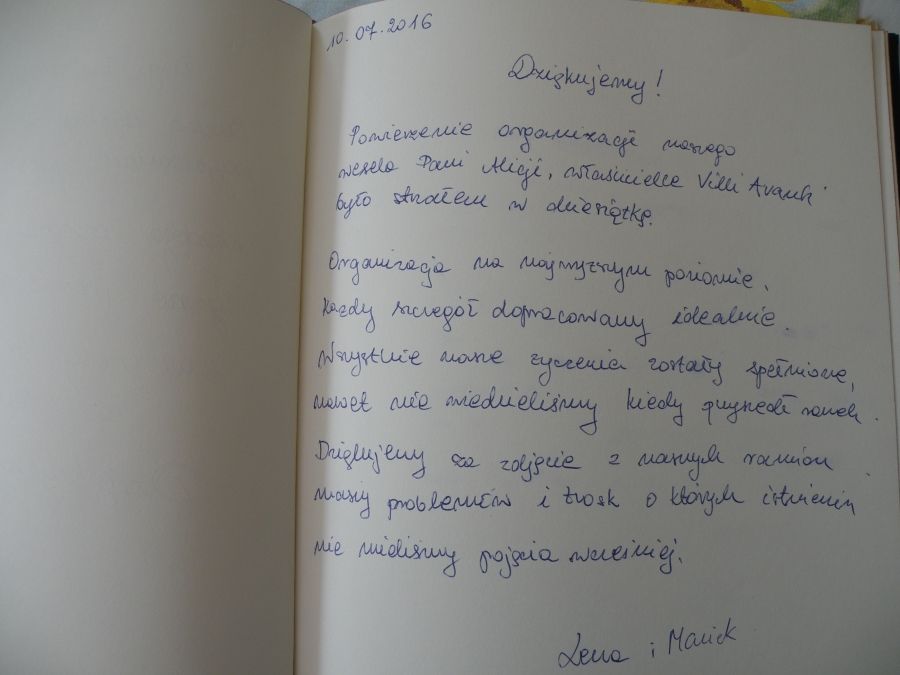 10.07.2016
Dziękujemy!
Powierzenie organizacji naszego
wesela Pani Alicji, właścicielce Villi Avanti
było strzałem w dziesiątkę.
Organizacja na najwyższym poziomie,
każdy szczegół dopracowany idealnie.
Wszystkie nasze życzenia zostały spełnione,
nawet nie wiedzieliśmy kiedy przyszedł ranek.
Dziękujemy za zdjęcie z naszych ramion
masy problemów i trosk o których istnieniu
nie mieliśmy pojęcia wcześniej.
Lena i Maciek